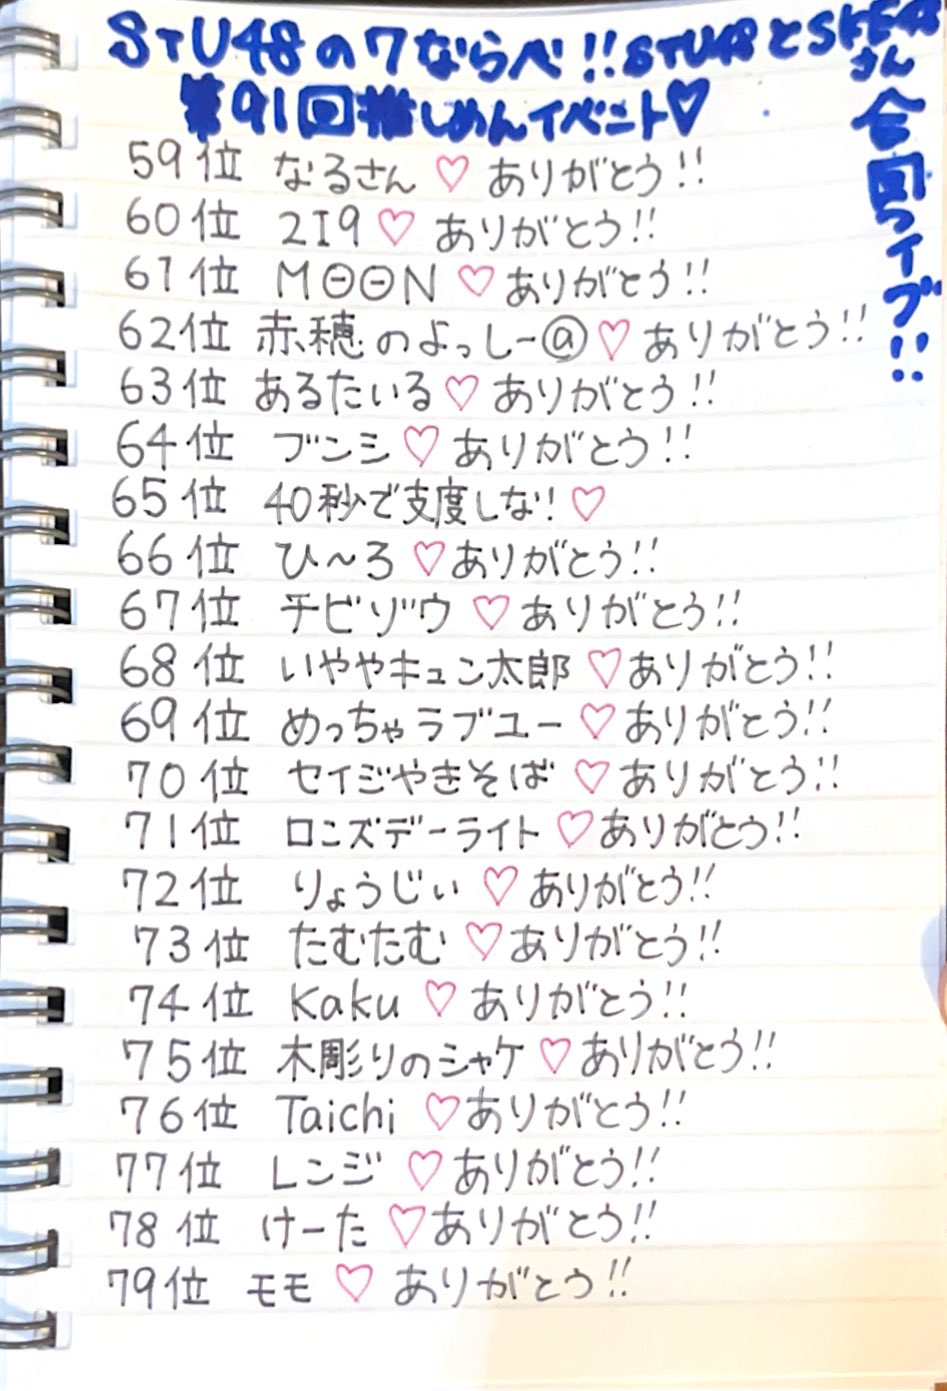 STU48の7ならべ!!STU48とSKE48さん合同ライブ!!
第91回推しめんイベント♡
59位 なるさん♡ありがとう!!
60位 219♡ありがとう!!
61位 MΘΘN♡ありがとう!!
62位 赤穂のよっしー@♡ありがとう!!
63位 あるたいる♡ありがとう!!
64位 ブンシ♡ありがとう!!
65位 40秒で支度しな!♡
66位 ひ〜ろ♡ありがとう!!
67位 チビゾウ♡ありがとう!!
68位 いややキュン太郎♡ありがとう!!
69位 めっちゃラブユー♡ありがとう!!
70位 セイジやきそば♡ありがとう!!
71位 ロンズデーライト♡ありがとう!!
72位 りょうじぃ♡ありがとう!!
73位 たむたむ♡ありがとう!!
74位 Kaku♡ありがとう!!
75位 木彫りのシャケ♡ありがとう!!
76位 Taichi♡ありがとう!!
77位 レンジ♡ありがとう!!
78位 けーた♡ありがとう!!
79位 モモ♡ありがとう!!